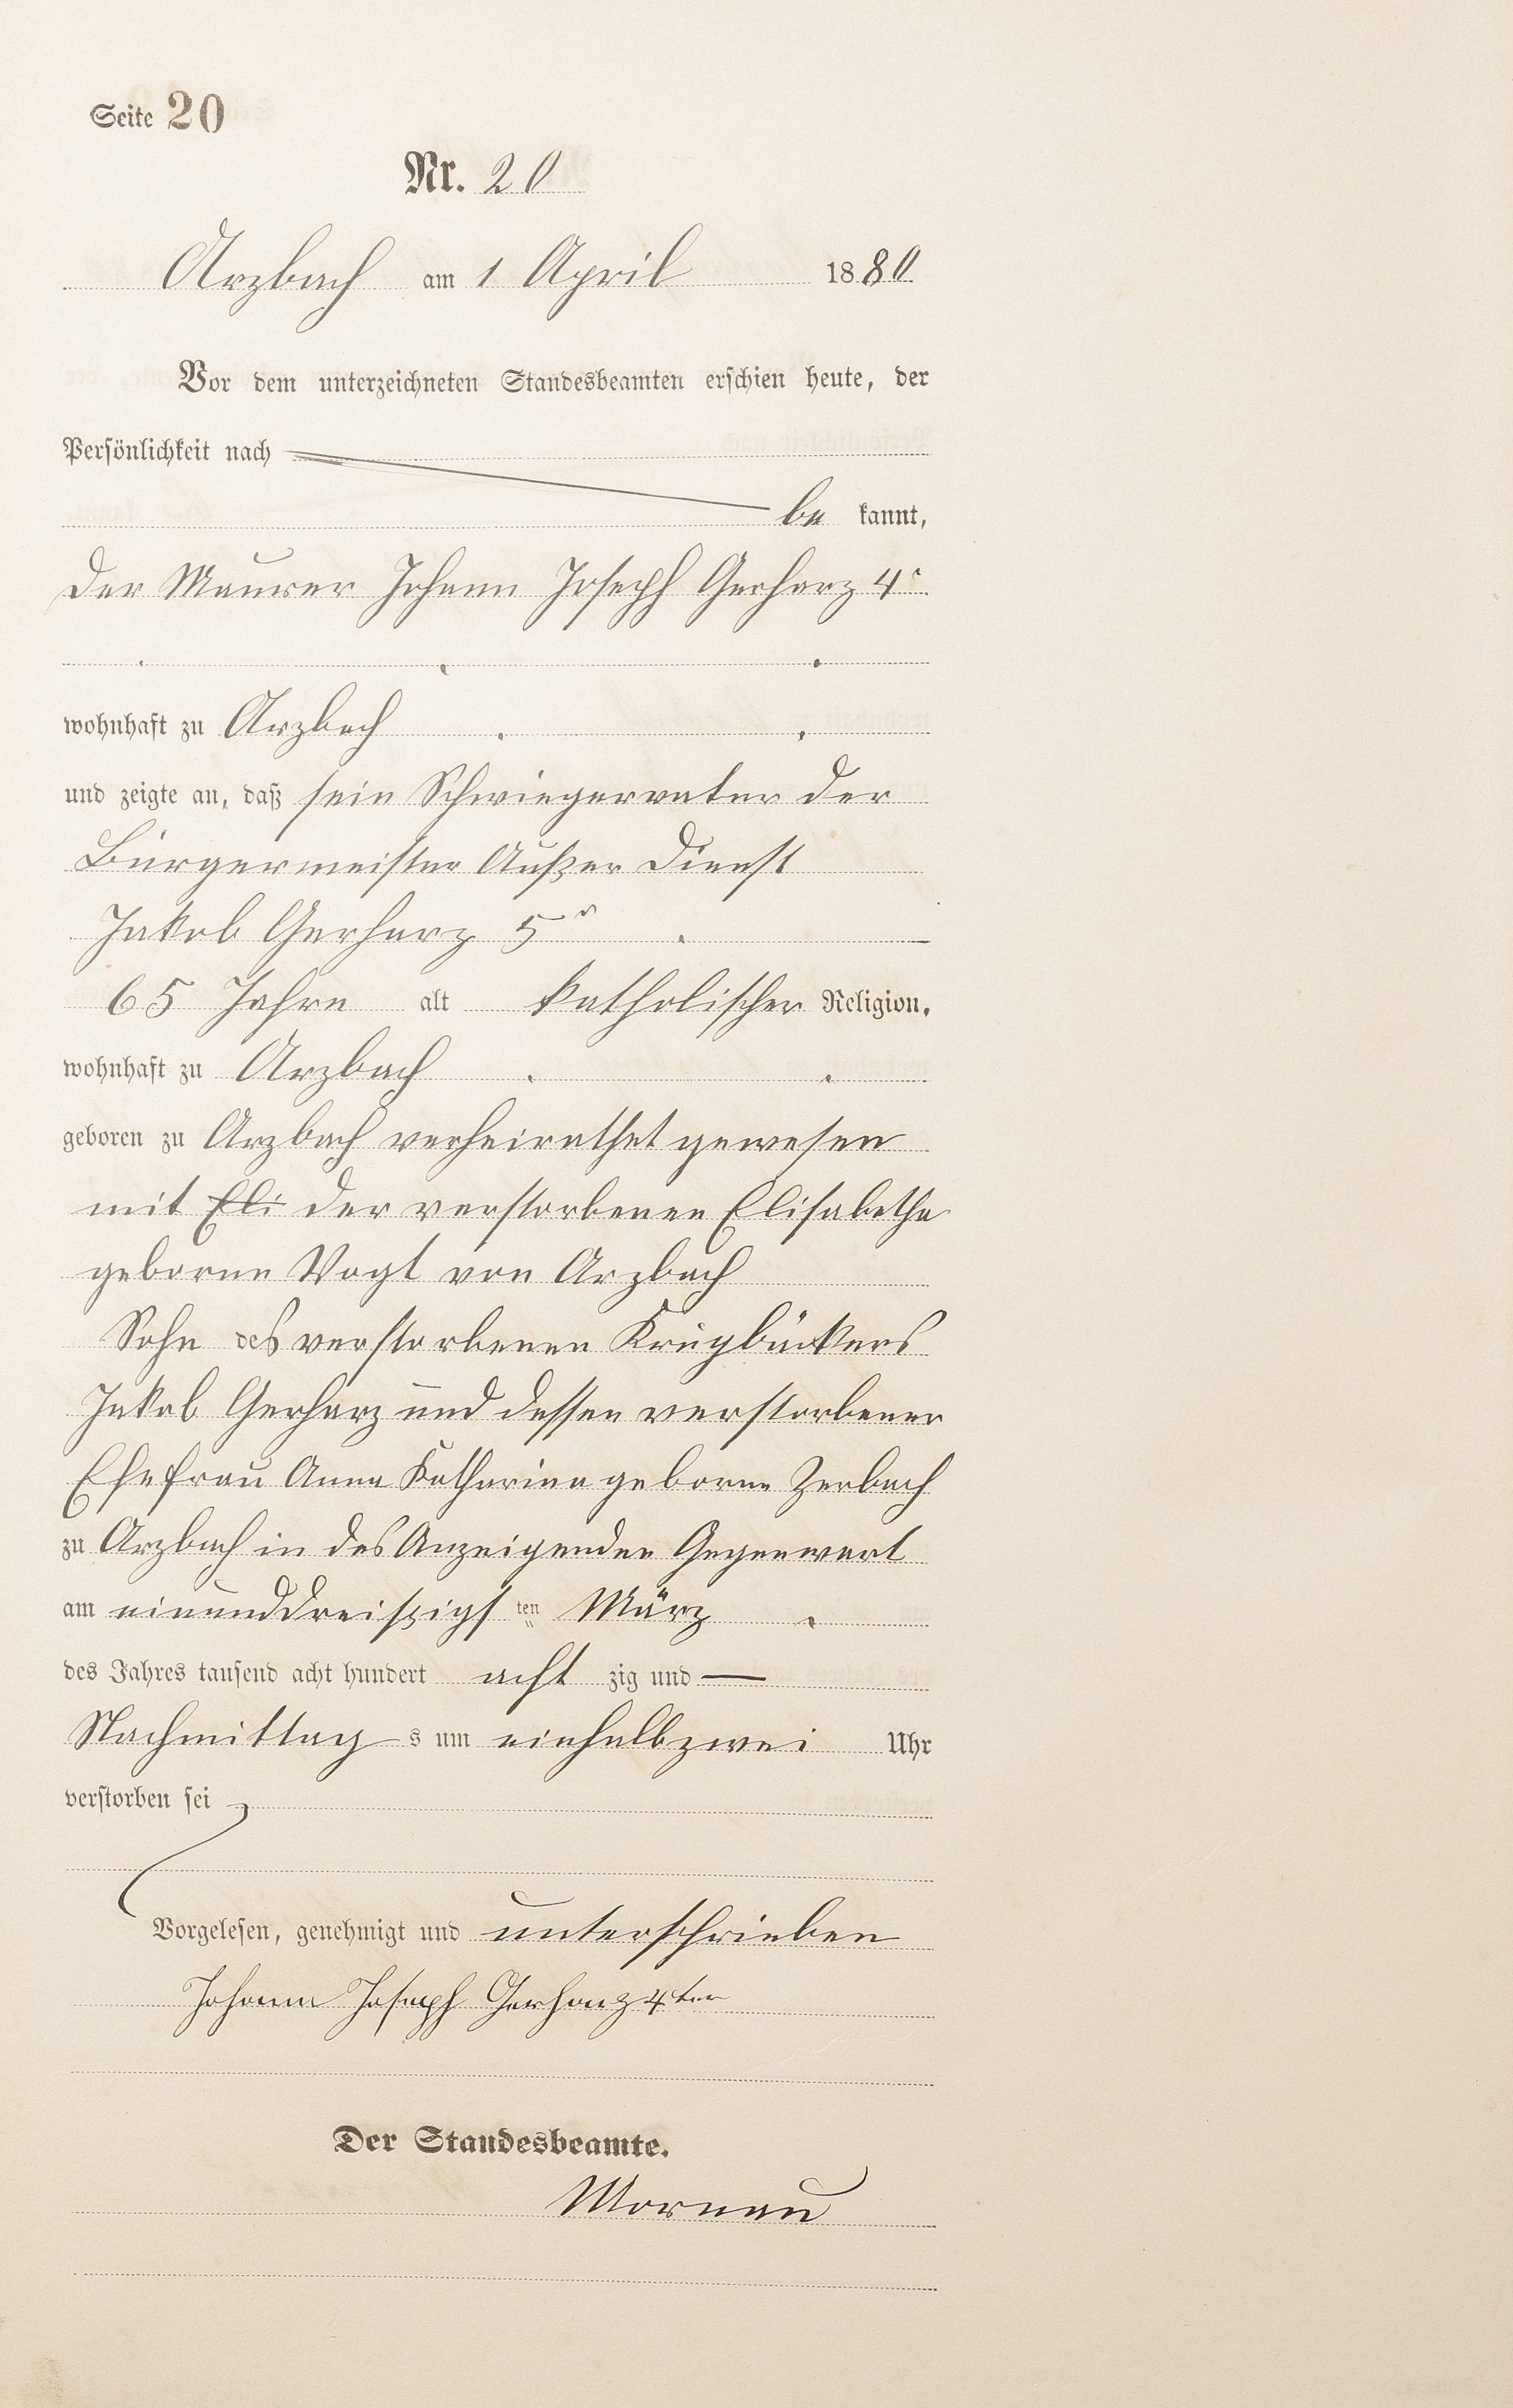 Seite 20
Nr. 20
Arzbach am 1 April 1880
Vor dem unterzeichneten Standesbeamten erschien heute, der
Persönlichkeit nach
be kannt,
der Maurer Johann Joseph Gerharz 4r
wohnhaft zu Arzbach
und zeigte an, daß sein Schwiegervater der
Bürgermeister Außer Dienst
Jakob Gerharz 5r
65 Jahre alt katholischer Religion,
wohnhaft zu Arzbach
geboren zu Arzbach verheirathet gewesen
mit Eli der verstorbenen Elisabetha
geborene Vogt von Arzbach
Sohn des verstorbenen Krugbäckers
Jakob Gerharz und dessen verstorbener
Ehefrau Anna Katharina geborne Zerbach
zu Arzbach in des Anzeigenden Gegenwart
am einunddreißigsten März
des Jahres tausend acht hundert acht zig und —
Nachmittag s um einhalbzwei Uhr
verstorben sei
Vorgelesen, genehmigt und unterschrieben
Johann Joseph Gerharz 4ter
Der Standesbeamte.
Mornau